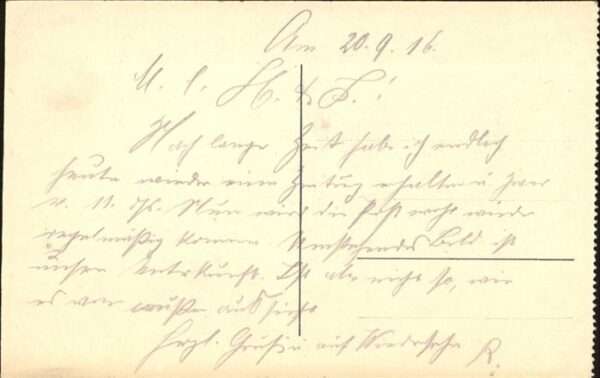 Am 20.9.16.
M. l. H. & F.!
Nach langer Zeit habe ich endlich
heute wieder eine Zeitung erhalten u. zwar
v. 11. ds. Nun wird die Post wohl wieder
regelmäßig kommen. Umstehendes Bild ist
unsere Unterkunft. Ist aber nicht so, wie
es von außen aussieht
Herzl. Grüße auf Wiedersehn R.